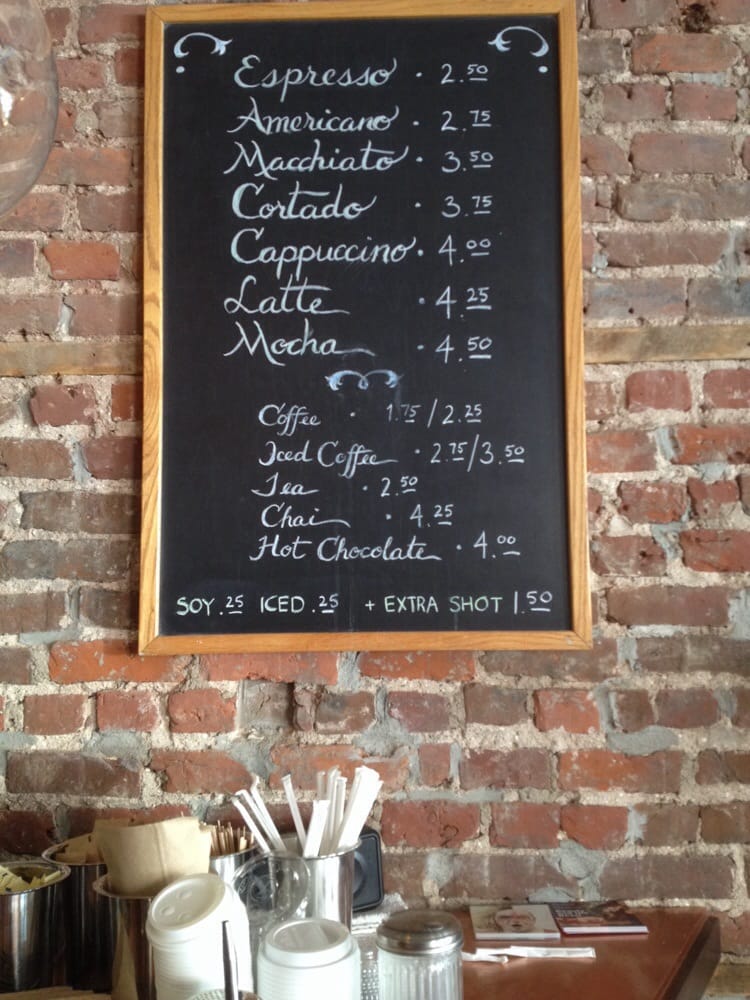 Espresso · 2.50
Americano · 2.75
Macchiato · 3.50
Cortado · 3.75
Cappuccino · 4.00
Latte · 4.25
Mocha · 4.50
Coffee · 1.75/2.25
Iced Coffee · 2.75/3.50
Tea · 2.50
Chai · 4.25
Hot Chocolate · 4.00
SOY .25 ICED .25 + EXTRA SHOT 1.50